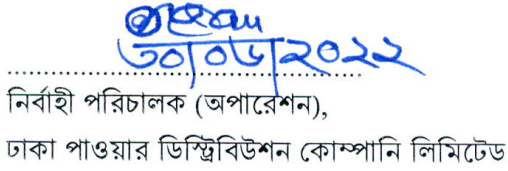 ৩০/০৬/২০২২
নির্বাহী পরিচালক (অপারেশন),
ঢাকা পাওয়ার ডিস্ট্রিবিউশন কোম্পানি লিমিটেড